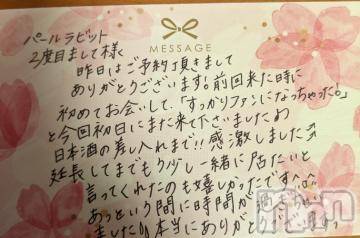 パールラビット
2度目まして様
MESSAGE
昨日はご予約頂きまして
ありがとうございます。前回来た時に
初めてお会いして、「すっかりファンになっちゃった。」
と今回初日にまた来て下さいましたね
日本酒の差し入れまで!!感激しました
延長してまでもう少し一緒に居たいと
言ってくれたのも嬉しかったです^^
あっという間に時間が
ました 本当にありがと